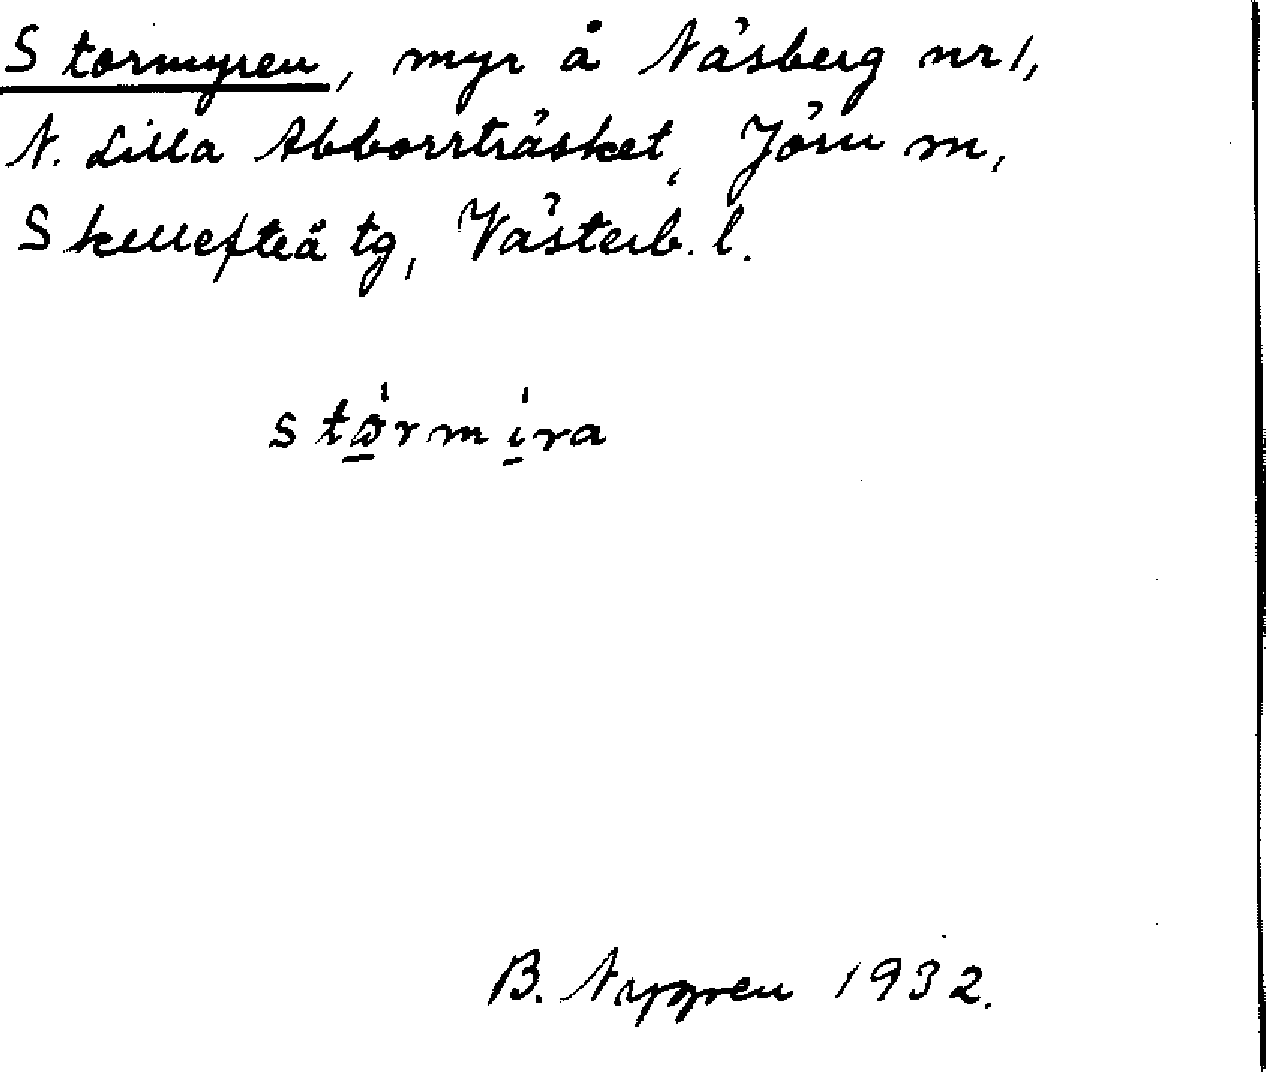 Stormyren, myr å Näsberg nr 1,
N. Lilla Abborrträsket, Jörn sn,
Skellefteå tg, Västerb. l.
B. Nygren 1932.